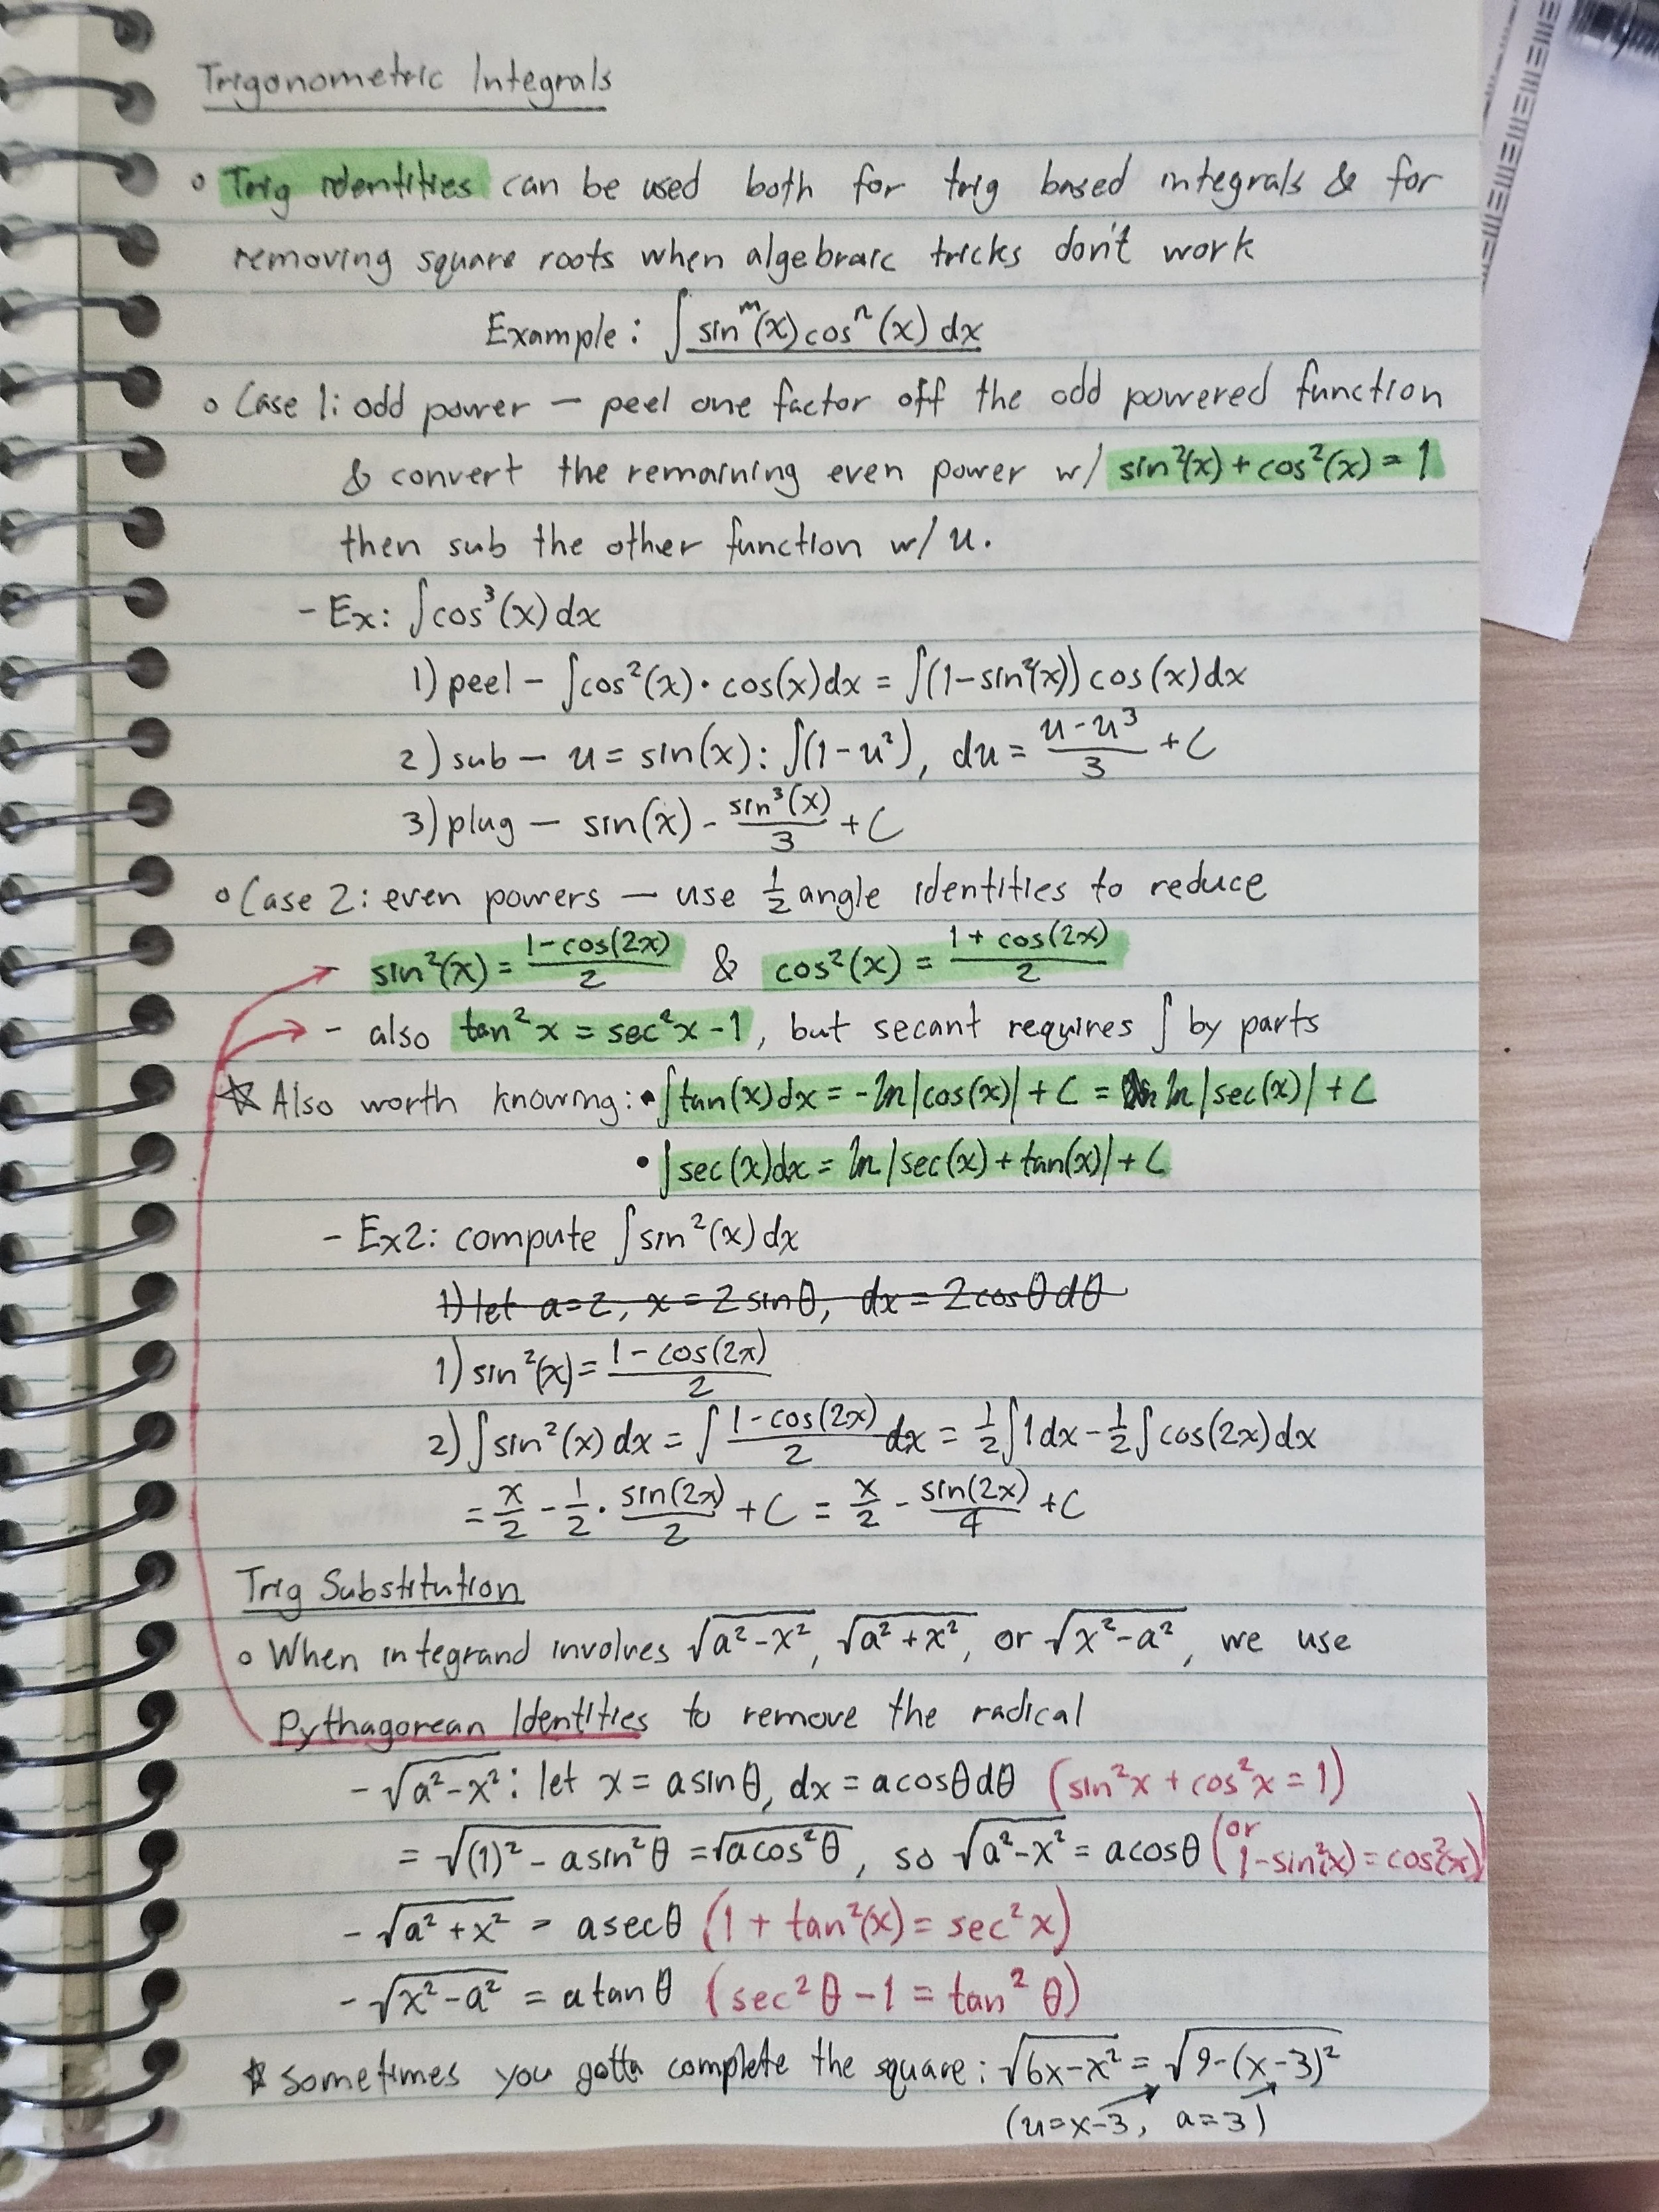 Trigonometric Integrals
◦ Trig identities can be used both for trig based integrals & for
removing square roots when algebraic tricks don't work
Example: ∫sinᵐ(x)cosⁿ(x)dx
◦ Case 1: odd power — peel one factor off the odd powered function
& convert the remaining even power w/ sin²(x)+cos²(x)=1
then sub the other function w/ u.
- Ex: ∫cos³(x)dx
1) peel - ∫cos²(x)·cos(x)dx = ∫(1-sin²(x))cos(x)dx
2) sub — u = sin(x): ∫(1-u²), du = (u-u³)/3 + C
3) plug — sin(x) - sin³(x)/3 + C
◦ Case 2: even powers — use 1/2 angle identities to reduce
- sin²(x) = (1-cos(2x))/2 & cos²(x) = (1+cos(2x))/2
- also tan²x = sec²x-1, but secant requires ∫ by parts
☆ Also worth knowing: • ∫tan(x)dx = -ln|cos(x)|+C = ln|sec(x)|+C
• ∫sec(x)dx = ln|sec(x)+tan(x)|+C
- Ex2: compute ∫sin²(x)dx
1) let a=2, x=2sinθ, dx=2cosθdθ
1) sin²(x) = (1-cos(2x))/2
2) ∫sin²(x)dx = ∫(1-cos(2x))/2 dx = 1/2∫1dx - 1/2∫cos(2x)dx
= x/2 - 1/2 · sin(2x)/2 + C = x/2 - sin(2x)/4 + C
Trig Substitution
◦ When integrand involves √(a²-x²), √(a²+x²), or √(x²-a²), we use
Pythagorean Identities to remove the radical
- √(a²-x²): let x = asinθ, dx = acosθdθ (sin²x+cos²x=1)
= √((1)²-asin²θ) = √(acos²θ), so √(a²-x²) = acosθ (or 1-sin²(x)=cos²(x))
- √(a²+x²) = asecθ (1+tan²(x)=sec²x)
- √(x²-a²) = atanθ (sec²θ-1=tan²θ)
☆ sometimes you gotta complete the square: √(6x-x²) = √(9-(x-3)²)
(u=x-3, a=3)